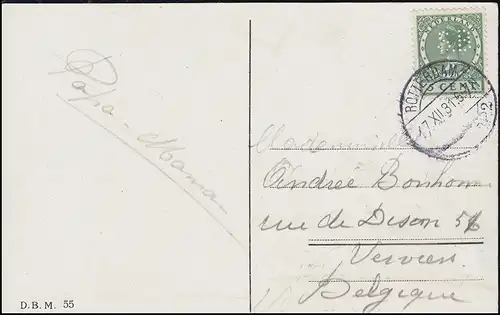 NEDERLAND
5 CENT
ROTTERDAM
17.XII.31.5
1932
Papa - Mama
Mademoiselle
Andrée Bonhom
rue de Dison 51
Verviers
Belgique
D.B.M. 55